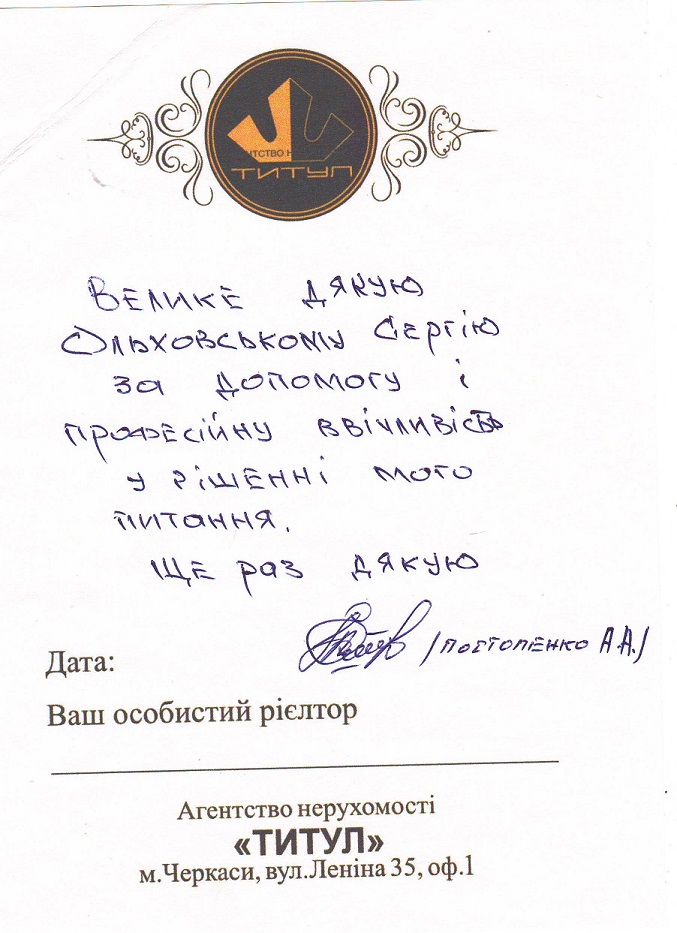 НТСТВО Н
ТИТУЛ
Велике дякую
Ольховському Сергію
за допомогу і
професійну ввічливість
у рішенні мого
питання.
Ще раз дякую
/Постопенко А.А./
Дата:
Ваш особистий рієлтор
Агентство нерухомості
«ТИТУЛ»
м.Черкаси, вул.Леніна 35, оф.1